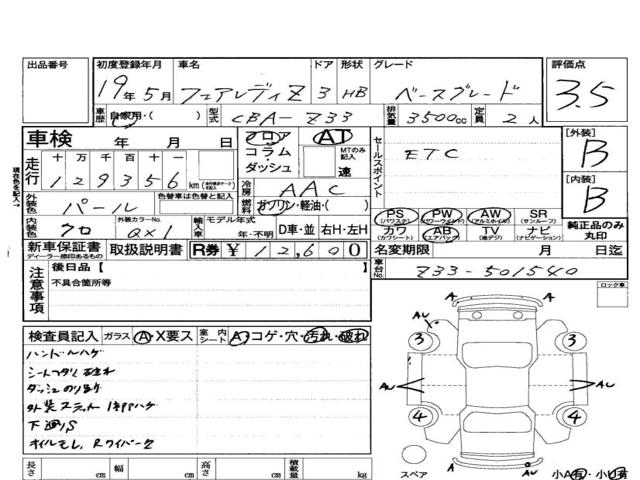 出品番号
初度登録年月 車名 ドア 形状 グレード 評価点
19年5月 フェアレディZ 3 HB ベースグレード 3.5
車歴 自家用・( ) 型式 CBA-Z33 排気量 3500cc 定員 2人
車検 年 月 日 フロア AT
コラム・ダッシュ MTのみ記入 速
走行 十 万 千 百 十 一
129356 km
冷房 AAC
セールスポイント ETC
[外装] B
[内装] B
外装色 パール 色替車は色替と記入 燃料 ガソリン・軽油・( )
内装色 クロ 外装カラーNo. QX1 輸入車 モデル年式 年・不明 D車・並 右H・左H
PS (パワステ) PW (パワーウインド) AW (アルミホイル) SR (サンルーフ)
カワ (カワシート) AB (エアバッグ) TV (地デジ) ナビ (ナビゲーション)
純正品のみ丸印
現在色を記入→
新車保証書 ディーラー捺印あるもの 取扱説明書 R券 ¥12,600 名変期限 月 日迄
車台No. Z33-501540
注意事項 後日品【
不具合箇所等
ロック車
検査員記入 ガラス A・X要ス 室内シート A・コゲ・穴・汚れ・破れ
ハンドルハゲ
ダッシュのり
下廻りS
オイルモレ、Rワイパー
AU A A
3 3
AU AU
4 4
スペア A AU A 小A有・小U有
長さ cm 幅 cm 高さ cm 積載量 kg